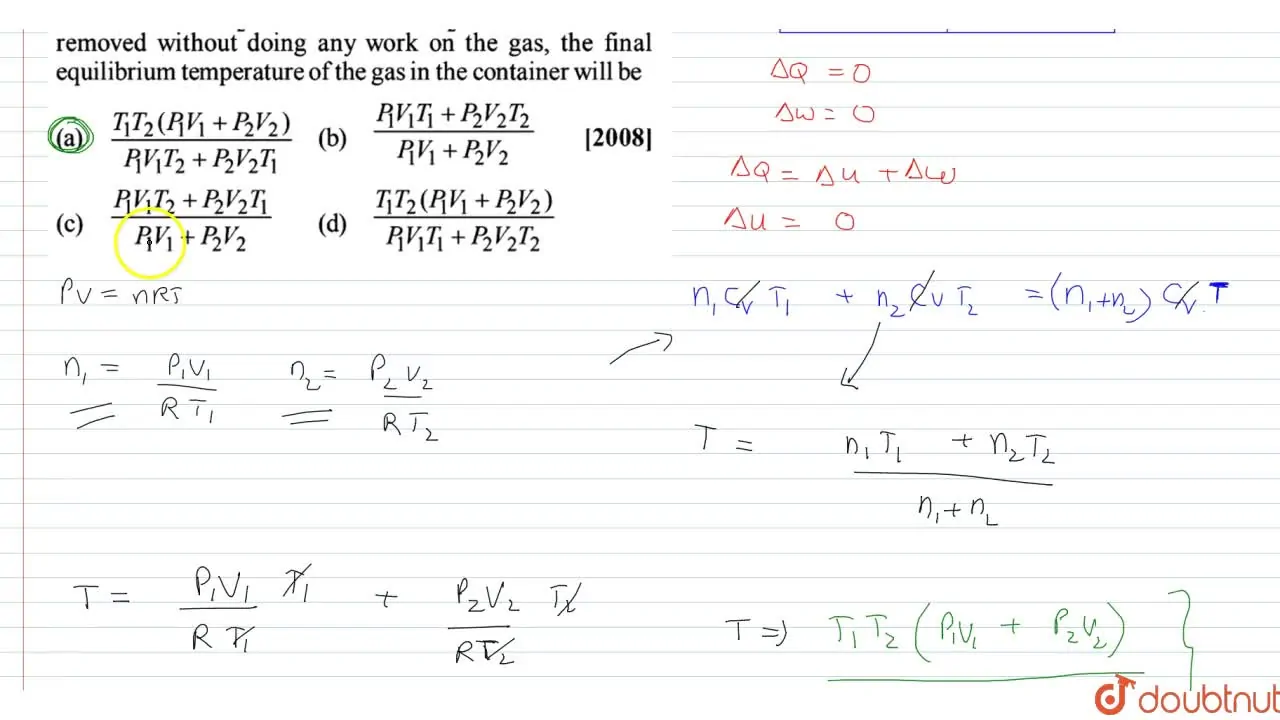 removed without doing any work on the gas, the final
equilibrium temperature of the gas in the container will be
(a) T₁T₂(P₁V₁ + P₂V₂) / P₁V₁T₂ + P₂V₂T₁ (b) P₁V₁T₁ + P₂V₂T₂ / P₁V₁ + P₂V₂ [2008]
(c) P₁V₁T₂ + P₂V₂T₁ / P₁V₁ + P₂V₂ (d) T₁T₂(P₁V₁ + P₂V₂) / P₁V₁T₁ + P₂V₂T₂
ΔQ = 0
ΔW = 0
ΔQ = ΔU + ΔW
ΔU = 0
PV = nRT
n₁ Cv T₁ + n₂ Cv T₂ = (n₁+n₂) Cv T
n₁ = P₁V₁ / R T₁ n₂ = P₂V₂ / R T₂
T = n₁T₁ + n₂T₂ / n₁+n₂
T = P₁V₁ T₁ / R T₁ + P₂V₂ T₂ / R T₂
T ⇒ T₁T₂ (P₁V₁ + P₂V₂)
doubtnut